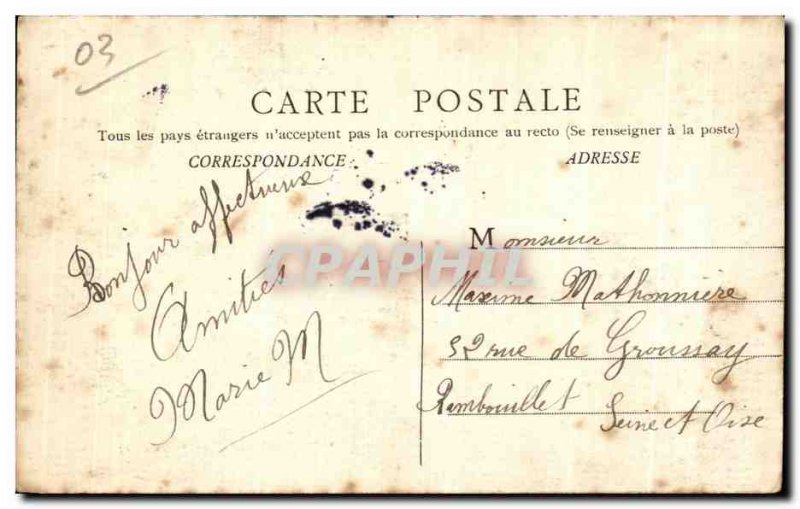 03
CARTE POSTALE
Tous les pays étrangers n'acceptent pas la correspondance au recto (Se renseigner à la poste)
CORRESPONDANCE
ADRESSE
Bonjour affectueux
Amitiés
Marie M
CPAPHIL
Monsieur
Maxime Mathonnière
32 rue de Groussay
Rambouillet
Seine et Oise